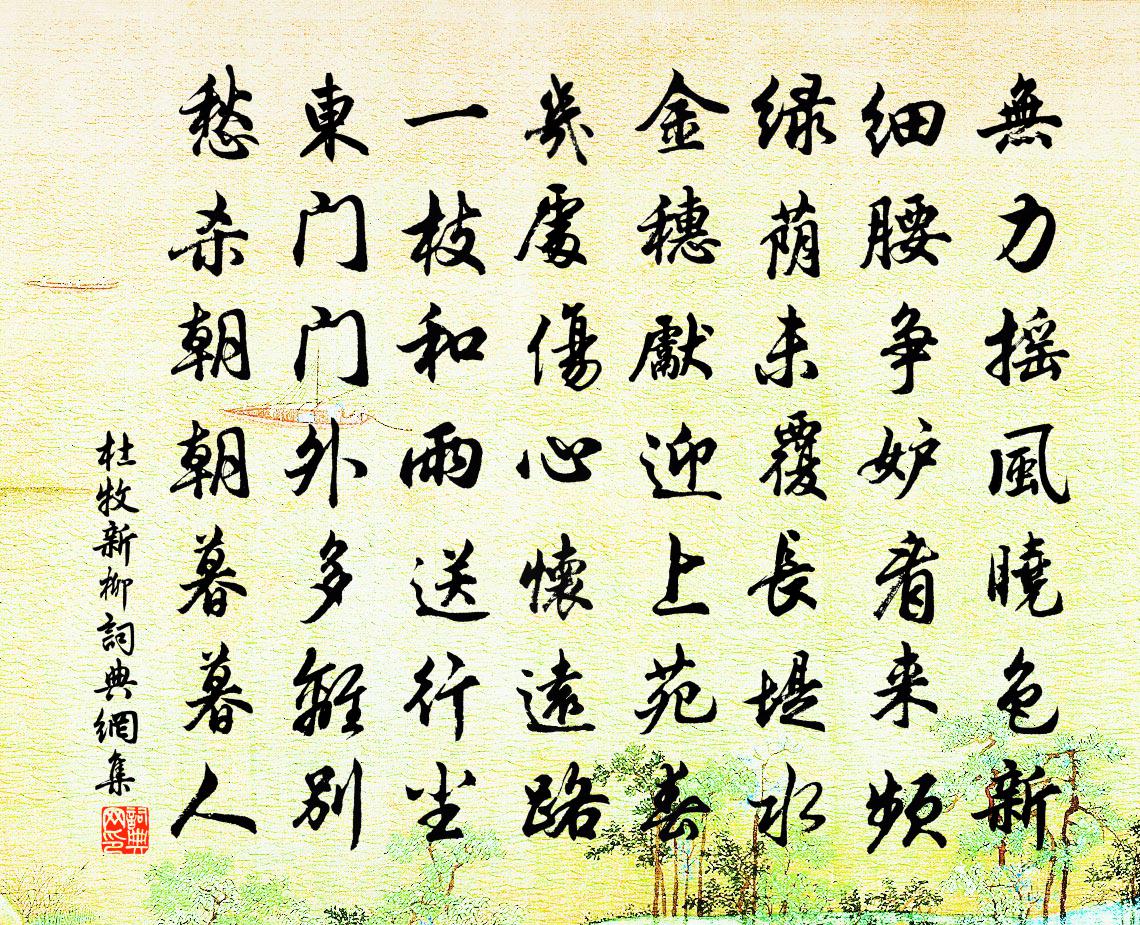 無力摇風曉色新
細腰争妒看来頻
緑荫未覆長堤水
金穗獻迎上苑春
幾處傷心懷遠路
一枝和雨送行尘
東门门外多離别
愁杀朝朝暮暮人
杜牧新柳詞典網集
詞典网印